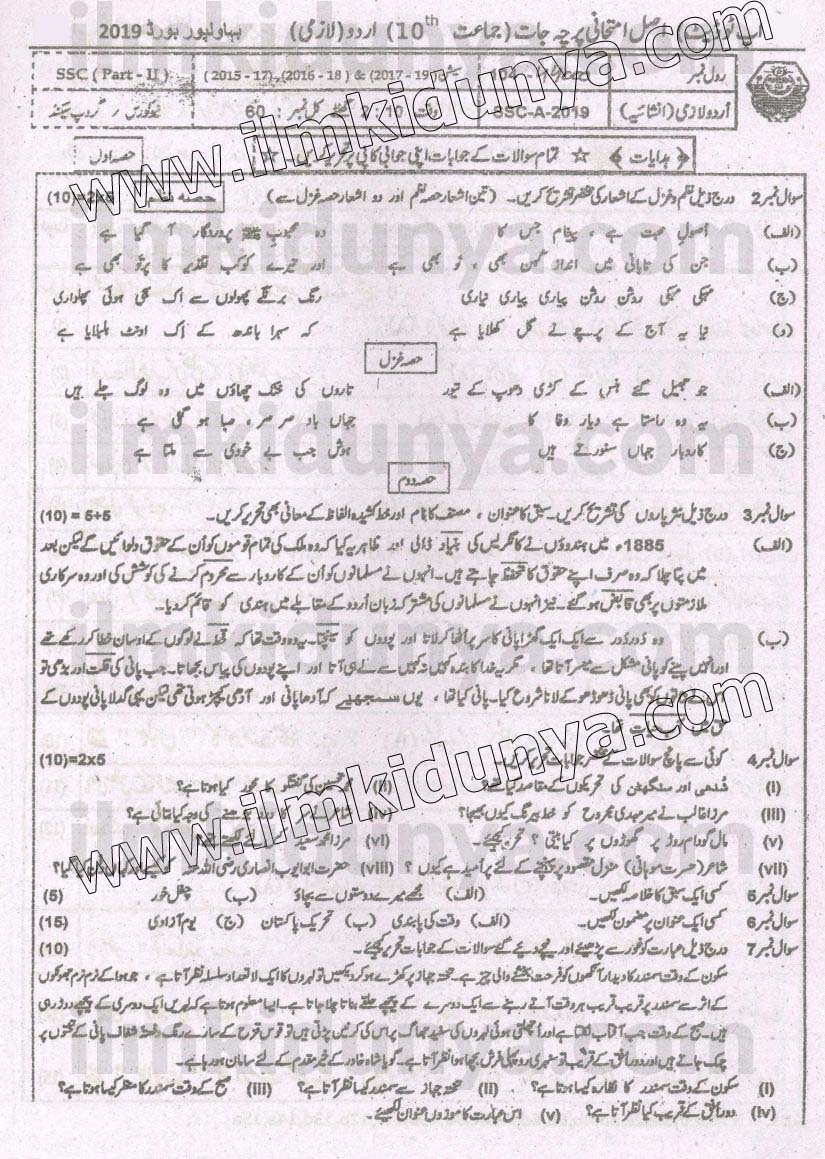 اپ ٹو ڈیٹ اصل امتحانی پرچہ جات (جماعت 10th) اردو (لازمی) بہاولپور بورڈ 2019
رول نمبر سیشن (2015 - 17), (2016 - 18) & (2017 - 19) SSC (Part - II)
اُردو لازمی (انشائیہ) SSC-A-2019 وقت 2:10 گھنٹے کل نمبر: 60
﴿ ہدایات ﴾ ☆ تمام سوالات کے جوابات اپنی جوابی کاپی پر تحریر کریں۔ ☆ حصہ اول
سوال نمبر 2 درج ذیل نظم و غزل کے اشعار کی مختصر تشریح کریں۔ (تین اشعار حصہ نظم اور دو اشعار حصہ غزل سے) حصہ نظم (10)=2x5
(الف) اُصولِ محبت ہے ، پیغام جس کا وہ محبوبِ ﷺ پروردگار آ گیا ہے
(ب) جن کی تابانی میں اندازِ کُہن بھی ، نَو بھی ہے اور تیرے کوکبِ تقدیر کا پرتَو بھی ہے
(ج) مہکی مہکی روشن روشن پیاری پیاری نیاری رنگ برنگے پھولوں سے اک سجی ہوئی پھلواری
(د) نیا یہ آج کے پرچے نے گل کھلایا ہے کہ سہرا باندھ کے اک اونٹ بلبلایا ہے
حصہ غزل
(الف) جو جھیل گئے ہنس کے کڑی دھوپ کے تیور تاروں کی خنک چھاؤں میں وہ لوگ جلے ہیں
(ب) یہ وہ راستا ہے دیارِ وفا کا جہاں بادِ صرصر ، صبا ہو گئی ہے
(ج) کاروبارِ جہاں سنورتے ہیں ہوش جب بے خودی سے ملتا ہے
حصہ دوم
سوال نمبر 3 درج ذیل نثرپاروں کی تشریح کریں۔ سبق کا عنوان ، مصنف کا نام اور خط کشیدہ الفاظ کے معانی بھی تحریر کریں۔ (10) = 5+5
(الف) 1885ء میں ہندوؤں نے کانگریس کی بنیاد ڈالی اور ظاہر یہ کیا کہ وہ ملک کی تمام قوموں کو اُن کے حقوق دلوائیں گے لیکن بعد
میں پتا چلا کہ وہ صرف اپنے حقوق کا تحفظ چاہتے ہیں۔ انہوں نے مسلمانوں کو اُن کے کاروبار سے محروم کرنے کی کوشش کی اور وہ سرکاری
ملازمتوں پر بھی قابض ہو گئے۔ نیز انہوں نے مسلمانوں کی مشترکہ زبان اُردو کے مقابلے میں ہندی کو قائم کر دیا۔
(ب) وہ دُور دُور سے ایک ایک گھڑا پانی کا سر پر اُٹھا کر لاتا اور پودوں کو سینچتا۔ یہ وہ وقت تھا کہ قحط نے لوگوں کے اوسان خطا کر رکھے تھے
اور انہیں پینے کو پانی مشکل سے میسر آتا تھا ، مگر یہ خدا کا بندہ کہیں نہ کہیں سے لے ہی آتا اور اپنے پودوں کی پیاس بجھاتا۔ جب پانی کی قلت اور بڑھی تو
اس نے راتوں کو بھی پانی ڈھو ڈھو کے لانا شروع کیا۔ پانی کیا تھا ، یوں سمجھیے کہ آدھا پانی اور آدھی کیچڑ ہوتی تھی لیکن یہی گدلا پانی پودوں کے
حق میں آبِ حیات تھا۔
سوال نمبر 4 کوئی سے پانچ سوالات کے مختصر جوابات تحریر کریں۔ (10)=2x5
(i) شدھی اور سنگھٹن کی تحریکوں کے مقاصد کیا تھے؟ (ii) محمد حسین کی گفتگو کا محور کیا ہوتا ہے؟
(iii) مرزا غالب نے میر مہدی مجروح کو خط بیرنگ کیوں بھیجا؟ (iv) شاعر نے کی وجہ کیا بتائی ہے؟
(v) مال گودام روڈ پر گھوڑوں پر کیا بیتی ؟ تحریر کیجئے۔ (vi) مرزا محمد سعید
(vii) شاعر (حسرت موہانی) منزلِ مقصود پر پہنچنے کے لئے پُر اُمید ہے کیوں ؟ (viii) حضرت ابو ایوب انصاری رضی اللہ عنہ کیا؟
سوال نمبر 5 کسی ایک سبق کا خلاصہ لکھیں۔ (الف) مجھے میرے دوستوں سے بچاؤ (ب) چغل خور (5)
سوال نمبر 6 کسی ایک عنوان پر مضمون لکھیں۔ (الف) وقت کی پابندی (ب) تحریکِ پاکستان (ج) یومِ آزادی (15)
سوال نمبر 7 درج ذیل عبارت کو غور سے پڑھیئے اور نیچے دیئے گئے سوالات کے جوابات تحریر کیجئے۔ (10)
سکون کے وقت سمندر کا دیدار آنکھوں کو فرحت بخشنے والی چیز ہے۔ تختہ جہاز پر کھڑے ہو کر دیکھیں تو لہروں کا ایک لا تعداد سلسلہ نظر آتا ہے ، جو ہوا کے نرم نرم جھونکوں
کے اثر سے سمندر پر قریب قریب ہر وقت آتے رہنے سے ایک دوسرے کے پیچھے حلقے بناتا چلا جاتا ہے۔ ایسا معلوم ہوتا ہے کہ لہریں ایک دوسری کے پیچھے دوڑ رہی
ہیں۔ صبح کے وقت جب آفتاب ہے اور اُچھلتی ہوئی لہروں کی سفید جھاگ پر اس کی کرنیں پڑتی ہیں تو قوسِ قزح کے سارے رنگ سطح شفاف پانی کے تختوں پر
چمک جاتے ہیں اور دور افق کے قریب تو سنہری روپہلی فرش بچھا ہوا نظر آتا ہے۔ گویا شاہ خاور کے خیر مقدم کے لئے سامان ہو رہا ہے۔
(i) سکون کے وقت سمندر کا نظارہ کیا ہوتا ہے؟ (ii) تختہ جہاز سے سمندر کیسا نظر آتا ہے؟ (iii) صبح کے وقت سمندر کا منظر کیسا ہوتا ہے؟
(iv) دور افق کے قریب کیا نظر آتا ہے؟ (v) اس عبارت کا موزوں عنوان لکھیئے۔
www.ilmkidunya.com
www.ilmkidunya.com